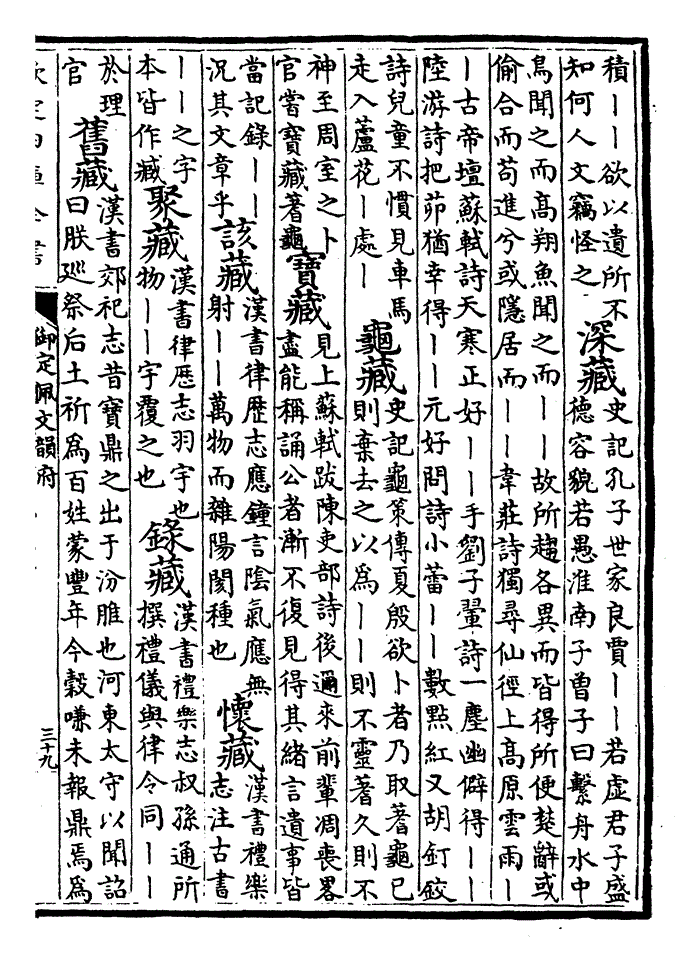 積丨丨欲以遺所不
知何人文竊怪之
深藏
史記孔子世家良賈丨丨若虛君子盛
德容貌若愚淮南子曾子曰繫舟水中
鳥聞之而高翔魚聞之而丨丨故所趨各異而皆得所便楚辭或
偷合而苟進兮或隱居而丨丨韋莊詩獨尋仙徑上高原雲雨丨
丨古帝壇蘇軾詩天寒正好丨丨手劉子翬詩一塵幽僻得丨丨
陸游詩把茆猶幸得丨丨元好問詩小蕾丨丨數點紅又胡釘鉸
詩兒童不慣見車馬
走入蘆花丨處丨
龜藏
史記龜策傳夏殷欲卜者乃取蓍龜已
則棄去之以為丨丨則不靈蓍久則不
神至周室之卜
官嘗寶藏蓍龜
寶藏
見上蘇軾跋陳吏部詩後邇來前輩凋喪畧
盡能稱誦公者漸不復見得其緒言遺事皆
當記錄丨丨
況其文章乎
該藏
漢書律歴志應鐘言陰氣應無
射丨丨萬物而雜陽閡種也
懷藏
漢書禮樂
志注古書
丨丨之字
本皆作臧
聚藏
漢書律歴志羽宇也
物丨丨宇覆之也
錄藏
漢書禮樂志叔孫通所
撰禮儀與律令同丨丨
於理
官
舊藏
漢書郊祀志昔寶鼎之出于汾脽也河東太守以聞詔
曰朕廵祭后土祈為百姓蒙豐年今穀嗛未報鼎焉為
欽定四庫全書
御定佩文韻府
三十九